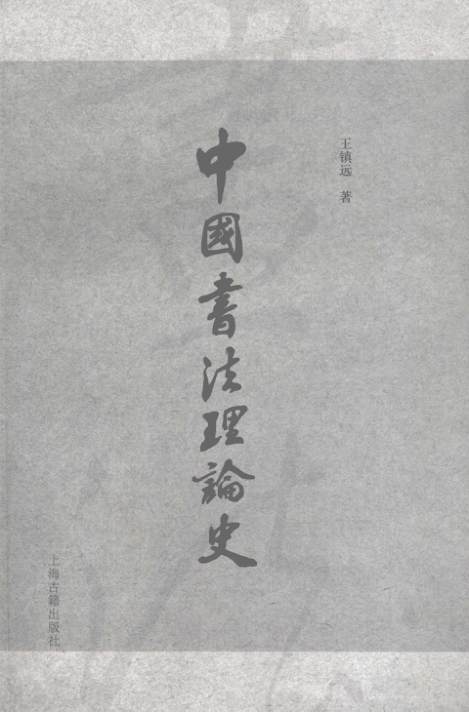 王镇远 著
中國書法理論史
上海古籍出版社